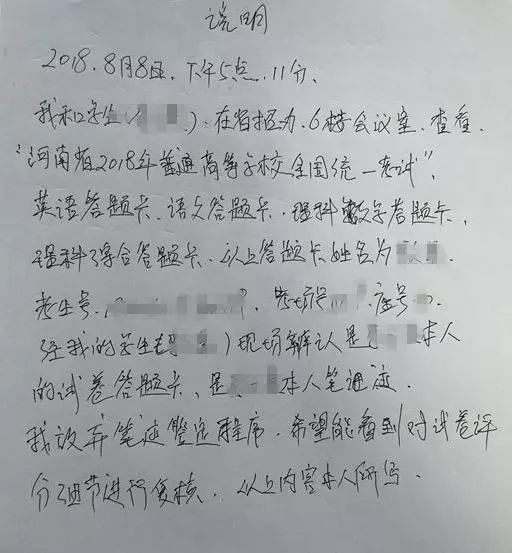 说明
2018.8月8日.下午5点.11分.
我和学生( ).在省招办.6楼会议室.查看.
"河南省2018年普通高等学校全国统一考试",
英语答题卡.语文答题卡.理科数学答题卡,
理科综合答题卡.以上答题卡姓名为
考生号. .考场号 .座号
经我的学生( )现场辨认是 本人
的试卷答题卡.是 本人笔迹.
我放弃笔迹鉴定程序.希望能看到对试卷评
分细节进行复核.以上内容本人所写.